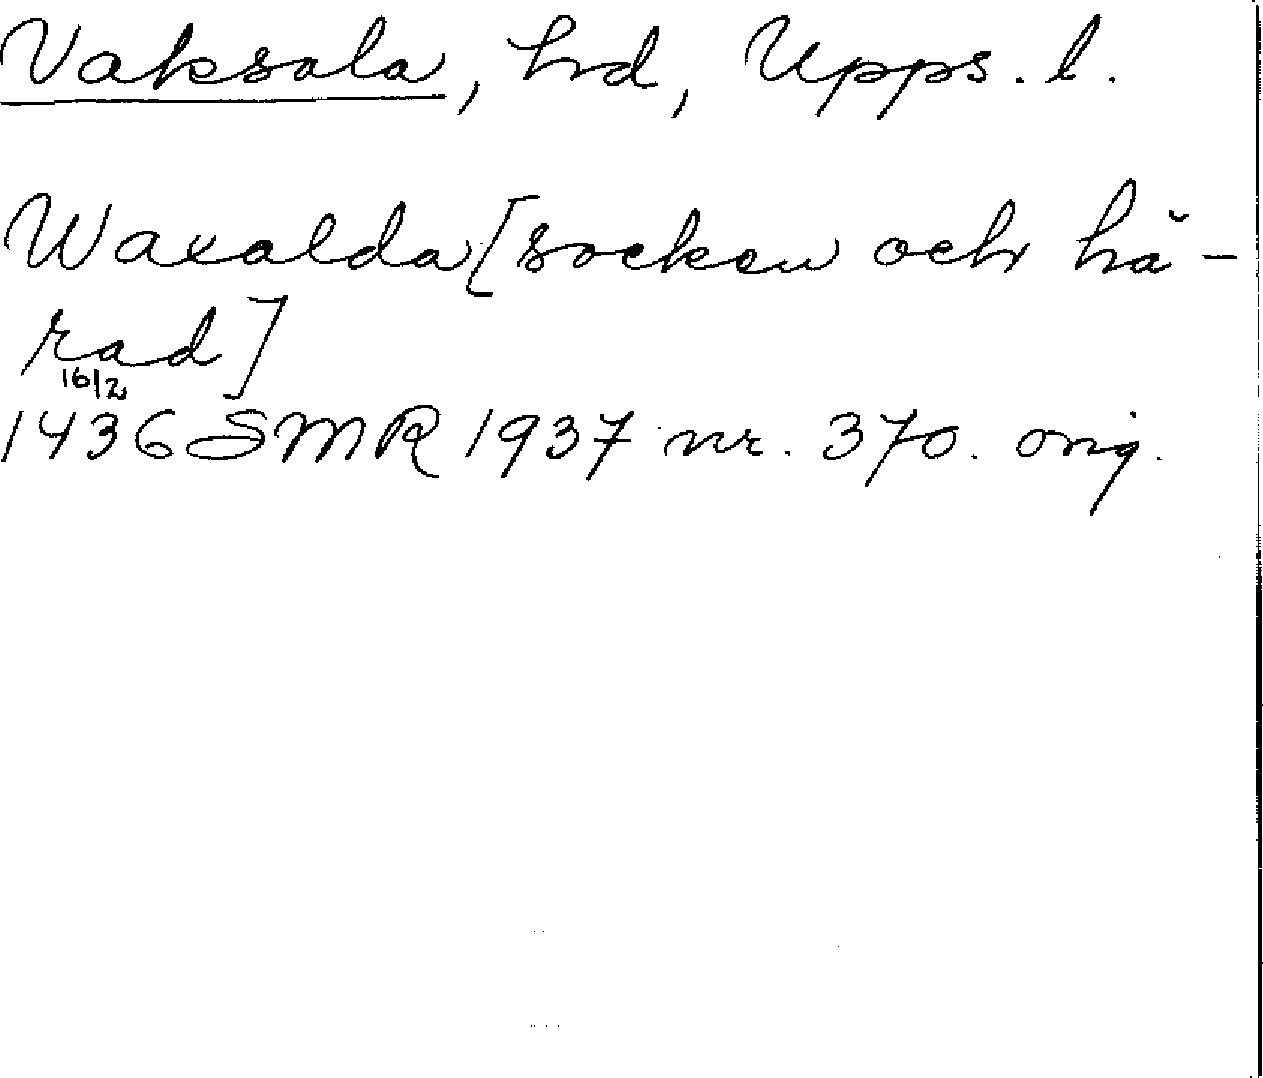 Vaksala, hd, Upps. l.
Waxalda [socken och hä-
rad]
16/2
1436 SMR 1937 nr. 370. orig.